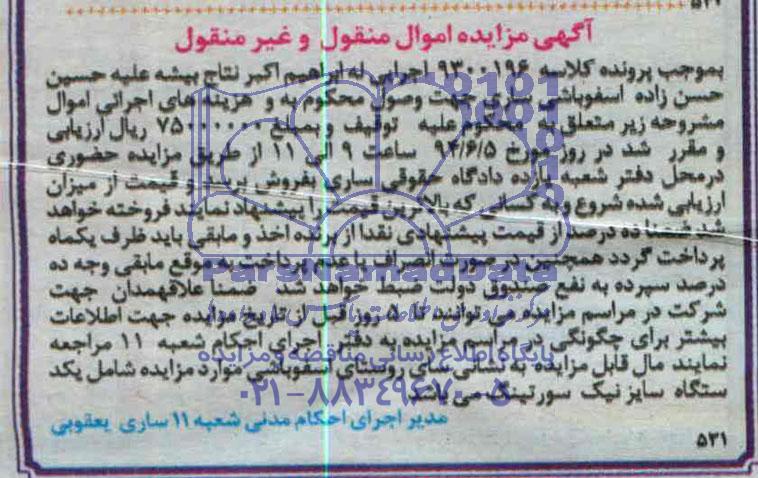 ۵۲۱
آگهی مزایده اموال منقول و غیر منقول
بموجب پرونده کلاسه ۹۳۰۰۱۹۶ اجرایی له ابراهیم اکبر نتاج بیشه علیه حسین
حسن زاده اسفوباشی ساری جهت وصول محکوم به و هزینه های اجرائی اموال
مشروحه زیر متعلق به محکوم علیه توقیف و بمبلغ ۷۵۰۰۰۰۰۰ ریال ارزیابی
و مقرر شد در روز مورخ ۹۴/۶/۵ ساعت ۹ الی ۱۱ از طریق مزایده حضوری
درمحل دفتر شعبه یازده دادگاه حقوقی ساری بفروش برسد و قیمت از میزان
ارزیابی شده شروع وبه کسانی که بالاترین قیمت را پیشنهاد نمایند فروخته خواهد
شد ضمنا ده درصد از قیمت پیشنهادی نقدا از برنده اخذ و مابقی باید ظرف یکماه
پرداخت گردد همچنین درصورت انصراف یا عدم پرداخت به موقع مابقی وجه ده
درصد سپرده به نفع صندوق دولت ضبط خواهد شد ضمنا علاقهمدان جهت
شرکت در مراسم مزایده می توانند تا ۵ روز قبل از تاریخ مزایده جهت اطلاعات
بیشتر برای چگونگی در مراسم مزایده به دفتر اجرای احکام شعبه ۱۱ مراجعه
نمایند مال قابل مزایده به نشانی سای روستای اسفوباشی موارد مزایده شامل یکد
ستگاه سایز نیک سورتینگ می باشد
مدیر اجرای احکام مدنی شعبه ۱۱ ساری یعقوبی
۵۳۱
ParsNamadData
پایگاه اطلاع رسانی مناقصه و مزایده
۰۲۱-۸۸۳۴۹۶۷۰-۵